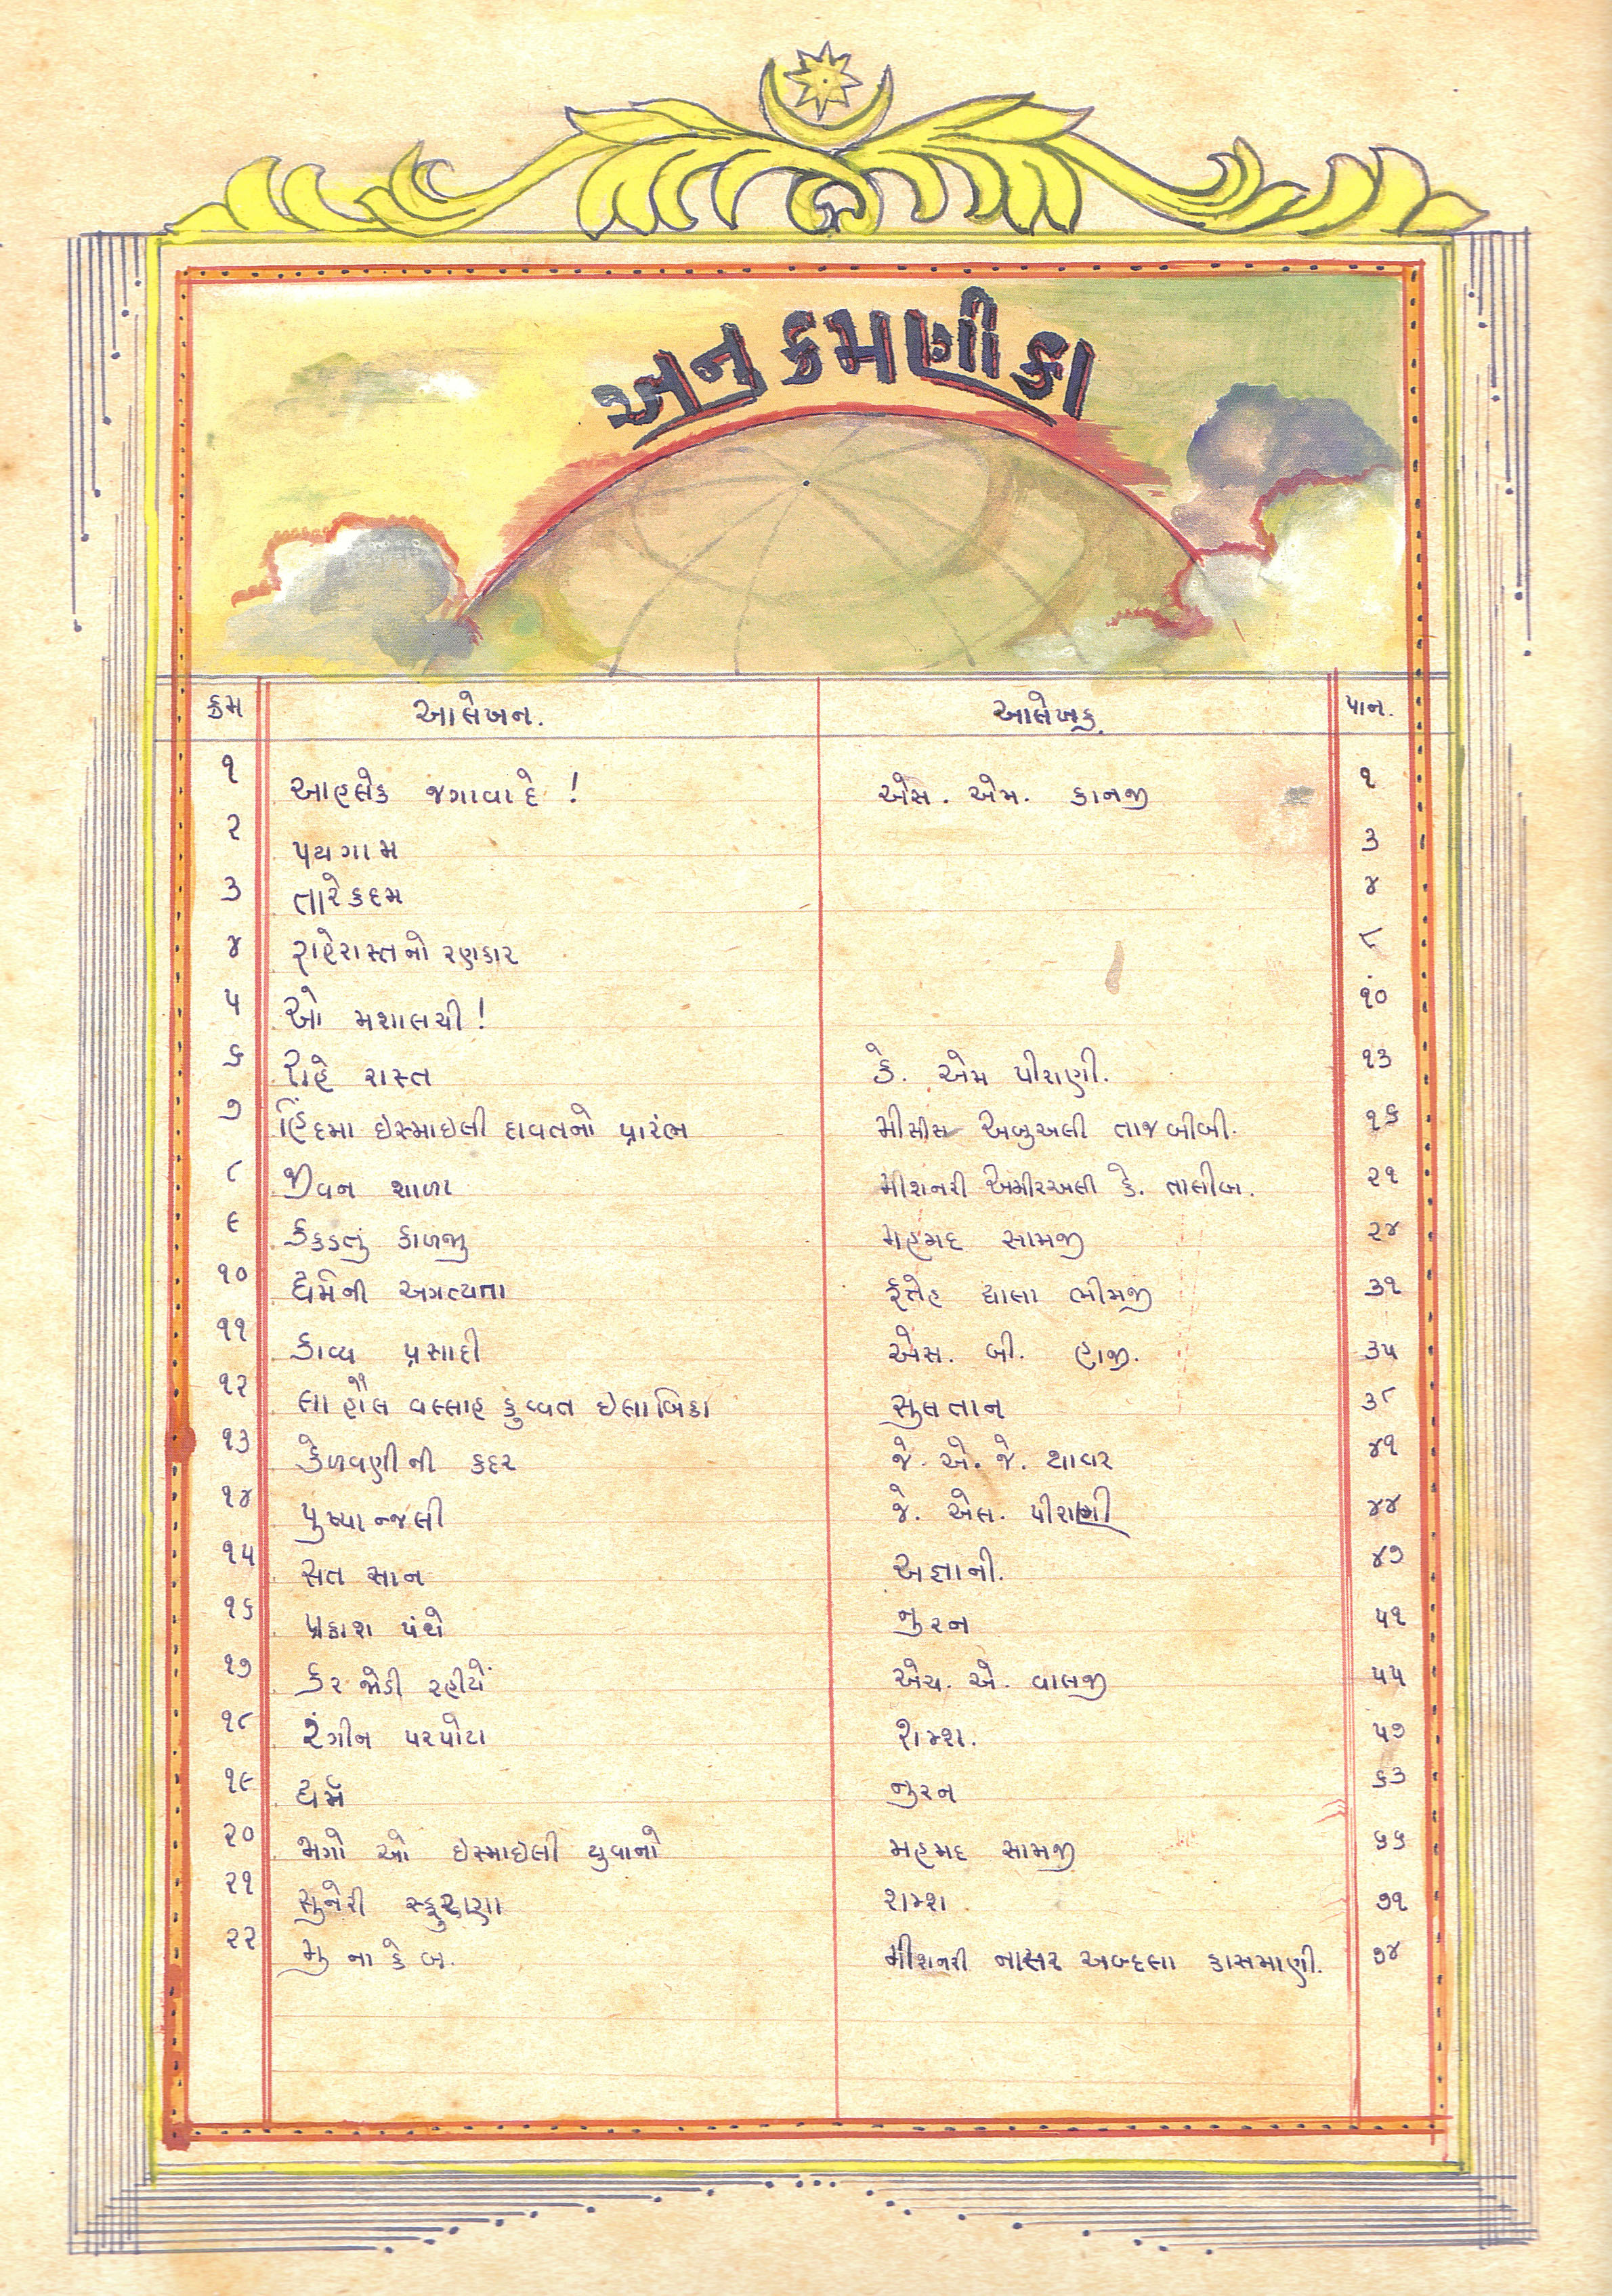 અનુક્રમણીકા
ક્રમ આલેખન. આલેખક પાન.
૧ આહલેક જગાવા દે ! એસ. એમ. કાનજી ૧
૨ પયગામ ૩
૩ તારેકદમ ૪
૪ રાહેરાસ્તનો રણકાર ૮
૫ ઓ મશાલચી ! ૧૦
૬ રાહે રાસ્ત કે. એમ પીરાણી. ૧૩
૭ હિંદમા ઇસ્માઇલી દાવતનો પ્રારંભ મીસીસ અબુઅલી તાજબીબી. ૧૬
૮ જીવન શાળા મીશનરી અમીરઅલી કે. તાલીબ. ૨૧
૯ કકડતું કાળજુ મહમદ સામજી ૨૪
૧૦ ધર્મની અગત્યતા ફતેહ વાલા ભીમજી ૩૧
૧૧ કાવ્ય પ્રસાદી એસ. બી. હાજી. ૩૫
૧૨ લા હૌલ વલ્લાહ કુવ્વત ઇલાબિલા સુલતાન ૩૮
૧૩ કેળવણીની કદર જે. એ. જે. થાવર ૪૧
૧૪ પુષ્પાન્જલી જે. એલ. પીરાણી ૪૪
૧૫ સત સાન અજ્ઞાની. ૪૭
૧૬ પ્રકાશ પંથે નુરન ૫૧
૧૭ કર જોડી રહીયેં એચ. એ. વાલજી ૫૫
૧૮ રંગીન પરપોટા શમ્શ. ૫૭
૧૯ ધર્મ નુરન ૬૩
૨૦ જાગો ઓ ઇસ્માઇલી યુવાનો મહમદ સામજી ૬૬
૨૧ સુનેરી સ્ફુરણા શમ્શ ૭૧
૨૨ મુ ના કે બ. મીશનરી નાસર અબ્દલા કાસમાણી. ૭૪